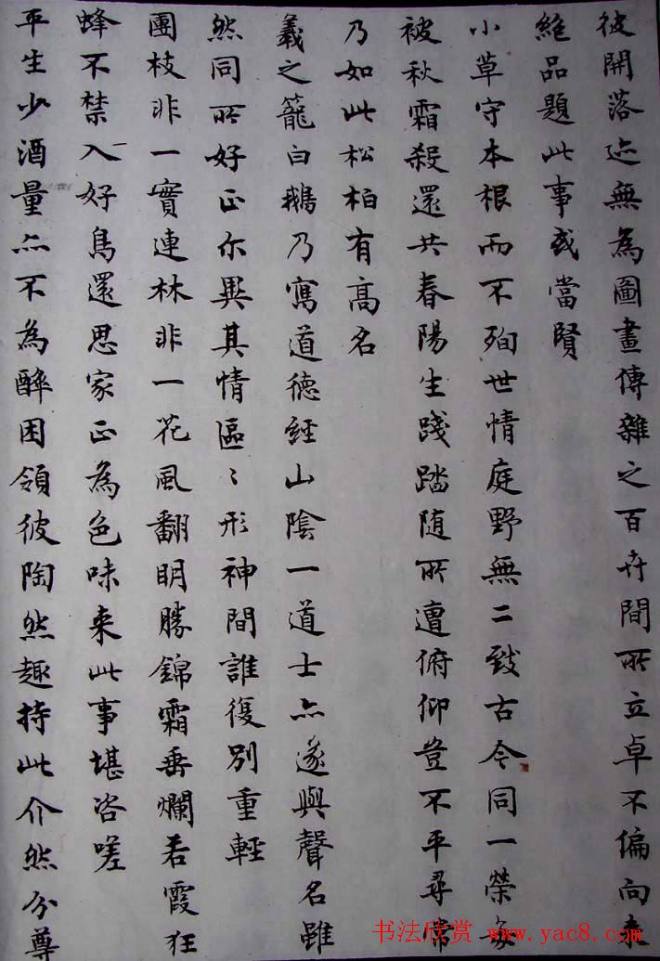 彼開落迹無為圖畫傳雜之百卉間所立卓不偏向来
絕品題此事或當賢
小草守本根而不殉世情庭野無二致古今同一榮每
被秋霜殺還共春陽生踐踏随所遭俯仰豈不平尋常
乃如此松柏有高名
羲之籠白鵝乃寫道德經山陰一道士亦遂與聲名雖
然同所好正尔異其情區〻形神間誰復別重輕
團枝非一實連林非一花風翻明勝錦霜垂爛若霞狂
蜂不禁入好鳥還思家正為色味来此事堪咨嗟
平生少酒量亦不為醉困領彼陶然趣持此介然分尊
书法欣赏 www.yac8.com